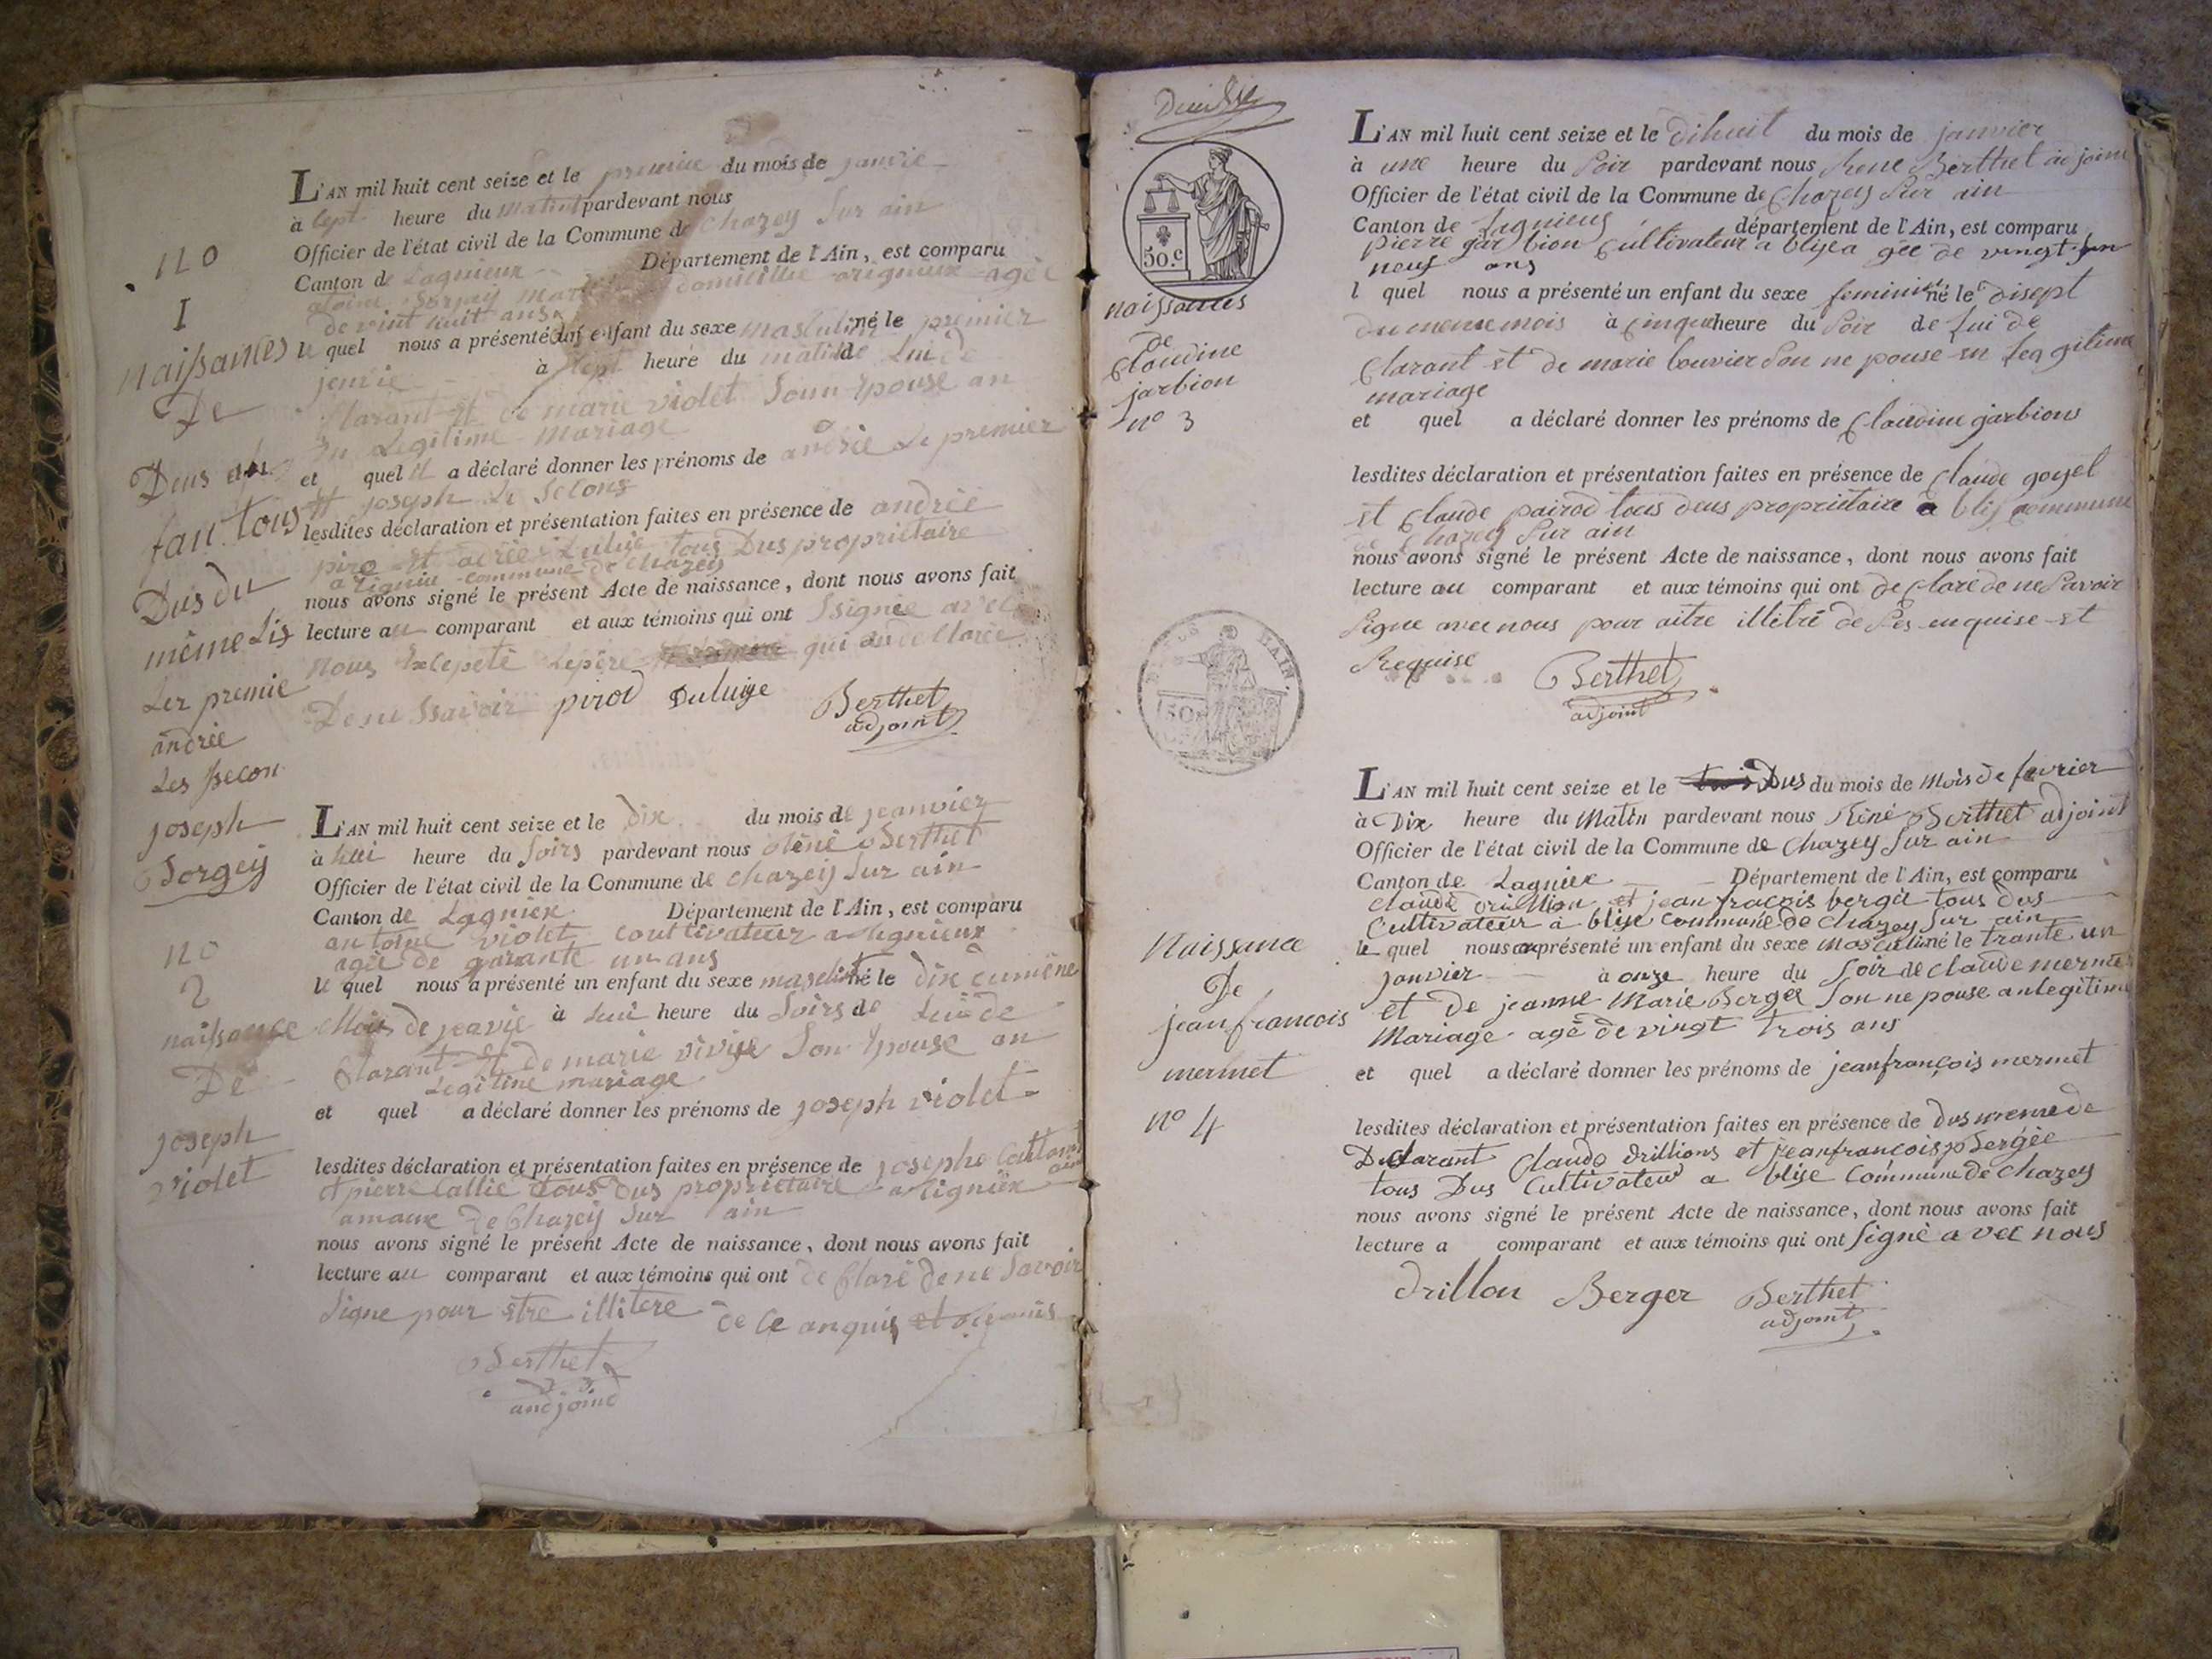 no
1
naissances
De
Deus
fan tous
Dus du
même Lis
Ler premie
andrée
Les secon
joseph
Sorgey
L'AN mil huit cent seize et le premier du mois de janvie
à sept heure du matin pardevant nous
Officier de l'état civil de la Commune de Chazey Sur ain
Canton de Lagnieux Département de l'Ain, est comparu
domicillie arignieux agée
de vint huit ans
le quel nous a présenté un enfant du sexe masculin né le premier
jenvie à sept heure du matin de Lui de
Clarant et de marie violet Soun Epouse an
Legitime Mariage
et quel il a déclaré donner les prénoms de andrée Le premier
et joseph Le Selons
lesdites déclaration et présentation faites en présence de andrée
piro et Duluise tous Dus propriétaire
a Rignieu commune de chazey
nous avons signé le présent Acte de naissance, dont nous avons fait
lecture au comparant et aux témoins qui ont Ssignée avec
nous Exlepeté Lepère qui au de Clarée
De ne Ssavoir pirod Duluise Berthet
adjoint
no
2
naissance
De
joseph
violet
L'AN mil huit cent seize et le Dix du mois de jeanvier
à huit heure du Soirs pardevant nous Réné Berthet
Officier de l'état civil de la Commune de Chazey Sur ain
Canton de Lagniex Département de l'Ain, est comparu
antoine violet coultivateur a Rignieux
agée de qarante un ans
le quel nous a présenté un enfant du sexe masculin né le dix dumême
Mois de jeavie à huit heure du Soirs de Lui de
Clarant et de marie vivise Son Epouse an
Legitine mariage
et quel a déclaré donner les prénoms de joseph violet
lesdites déclaration et présentation faites en présence de josephe
et pierre Callie tous Dus proprietaire a Rigniex
amaux de Chazey Sur ain
nous avons signé le présent Acte de naissance, dont nous avons fait
lecture au comparant et aux témoins qui ont de Claré de ne Savoir
Signe pour etre illitere de Ce anquis et
Berthet
andjoind
50.c
naissances
de
Claudine
jarbion
n° 3
L'AN mil huit cent seize et le dihuit du mois de janvier
à une heure du Soir pardevant nous Rene Berthet adjoint
Officier de l'état civil de la Commune de Chazey Sur ain
Canton de Lagnieus département de l'Ain, est comparu
pierre garbion Cultivateur a blise a gée de vingt
neuf ans
l quel nous a présenté un enfant du sexe feminin né le disept
du meme mois à cinque heure du Soir de Lui de
Clarant et de marie bouvier Son ne pouse en Leg gitime
mariage
et quel a déclaré donner les prénoms de Claudine garbions
lesdites déclaration et présentation faites en présence de Claude goyel
et Claude pairod tous deus proprietaire a blis commune
de Chazey Sur ain
nous avons signé le présent Acte de naissance, dont nous avons fait
lecture au comparant et aux témoins qui ont de Claré de ne Savoir
Signe avec nous pour aitre illétré de Ses enquise et
Requise Berthet
adjoint
Naissance
De
jean francois
mermet
n° 4
L'AN mil huit cent seize et le Dus du mois de Mois de fevrier
à Dix heure du Matin pardevant nous Réné Berthet adjoint
Officier de l'état civil de la Commune de Chazey Sur ain
Canton de Lagniex Département de l'Ain, est comparu
Claude drillion et jean fracois bergée tous dus
Cultivateur a blise Commune de Chazey Sur ain
le quel nous a présenté un enfant du sexe Masculin né le trante un
janvier à onze heure du Soir de claude mermet
et de jeanne Marie Berger Son ne pouse an legitime
Mariage agé de vingt trois ans
et quel a déclaré donner les prénoms de jeanfrançois mermet
lesdites déclaration et présentation faites en présence de dus meme de
Duclarant Claude drillions et jeanfrancois Bergée
tous Dus Cultivateur a blise Commune de Chazey
nous avons signé le présent Acte de naissance, dont nous avons fait
lecture a comparant et aux témoins qui ont Signé a vec nous
Drillon Berger Berthet
adjoint